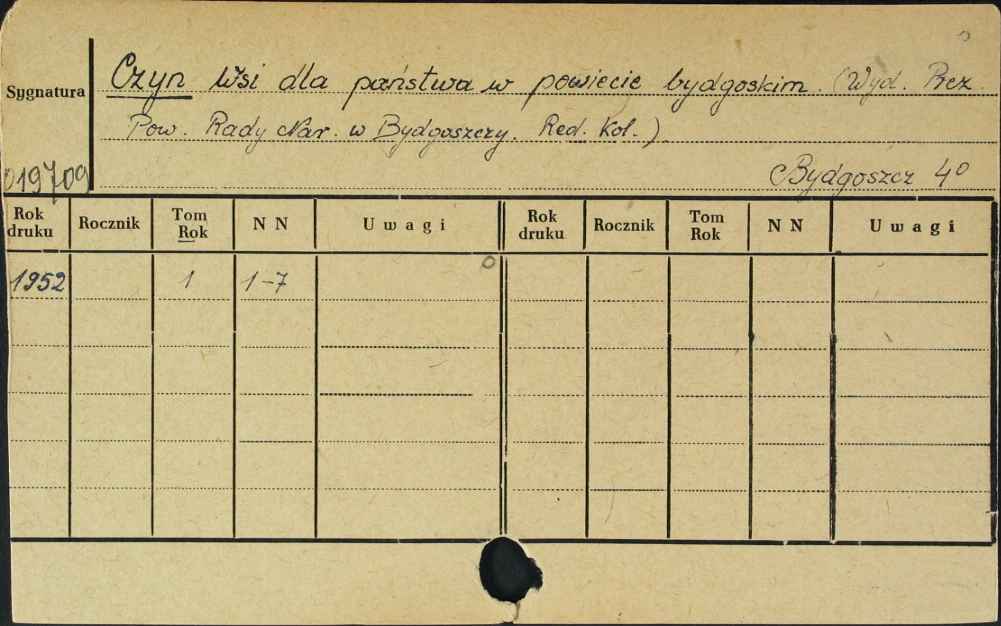 Czyn Wsi dla państwa w powiecie bydgoskim. (Wyd. Prez.
Sygnatura
Pow. Rady Nar. w Bydgoszczy. Red. Kol.)
019709
Bydgoszcz 4°
Rok druku Rocznik Tom Rok N N Uwagi Rok druku Rocznik Tom Rok N N Uwagi
1952 1 1-7